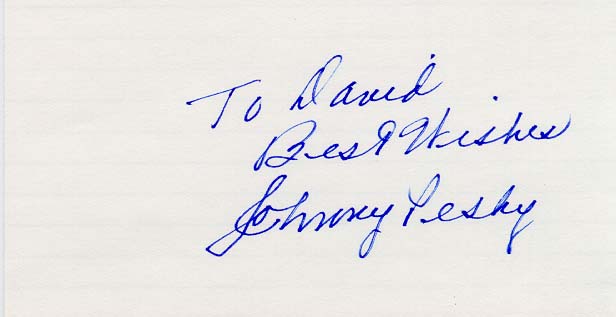 To David
Best Wishes
Johnny Pesky